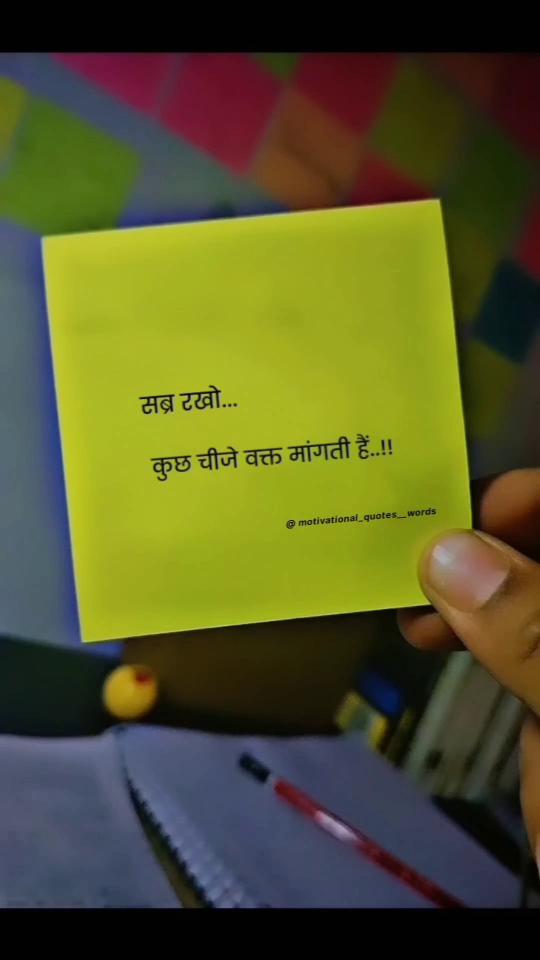 सब्र रखो...
कुछ चीजे वक्त मांगती हैं..!!
@ motivational_quotes__words